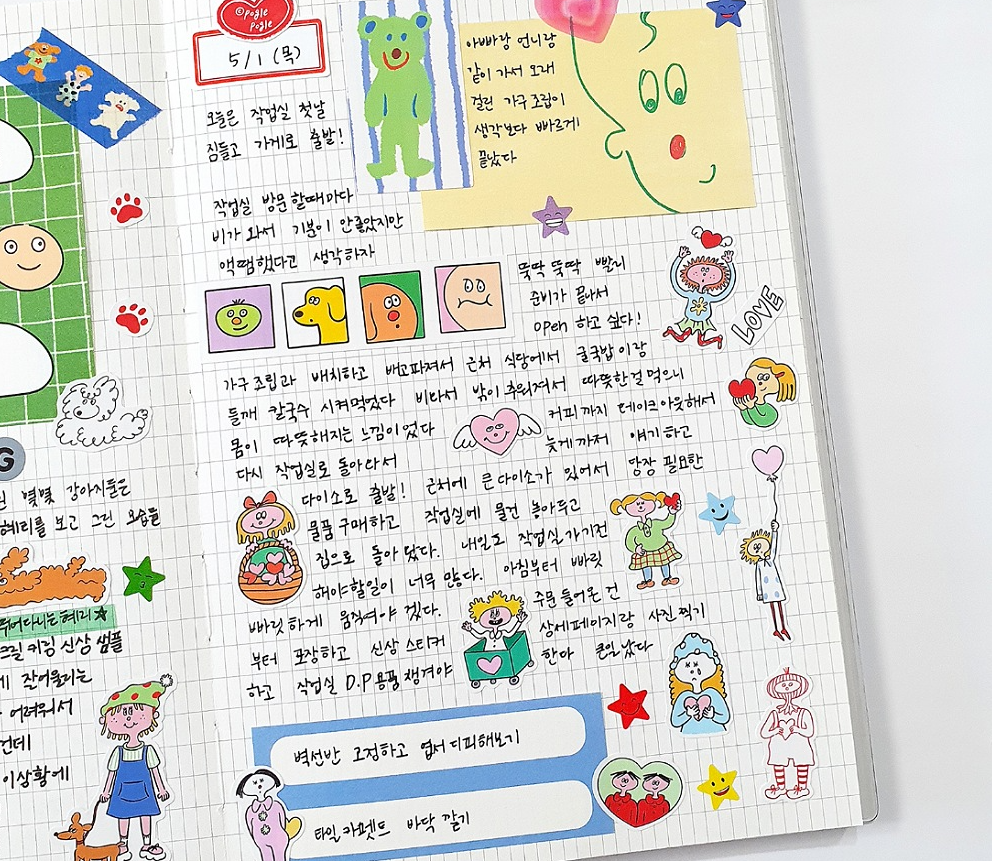 G
몇몇 강아지들은
혜리를 보고 그린 모습들
뛰어다니는 혜리
키링 신상 샘플
잘어울리는
어려워서
이상황에
©pogle pogle
5/1 (목)
오늘은 작업실 첫날
짐들고 가게로 출발!
작업실 방문 할때마다
비가 와서 기분이 안좋았지만
액땜했다고 생각하자
아빠랑 언니랑
같이 가서 오래
걸린 가구 조립이
생각보다 빠르게
끝났다
뚝딱 뚝딱 빨리
준비가 끝나서
open 하고 싶다!
LOVE
가구 조립과 배치하고 배고파져서 근처 식당에서 굴국밥이랑
들깨 칼국수 시켜먹었다 비와서 밖이 추워져서 따뜻한걸 먹으니
몸이 따뜻해지는 느낌이었다 커피까지 테이크아웃해서
다시 작업실로 돌아와서 늦게까지 얘기하고
다이소로 출발! 근처에 큰 다이소가 있어서 당장 필요한
물품 구매하고 작업실에 물건 놓아두고
집으로 돌아 왔다. 내일도 작업실 가기전
해야할일이 너무 많다. 아침부터 빠릿
빠릿하게 움직여야 겠다. 주문 들어온 건
부터 포장하고 신상 스티커 상세페이지랑 사진 찍기
하고 작업실 D.P용품 챙겨야 한다 큰일났다
벽선반 고정하고 엽서 디피해보기
타일 카펫트 바닥 깔기